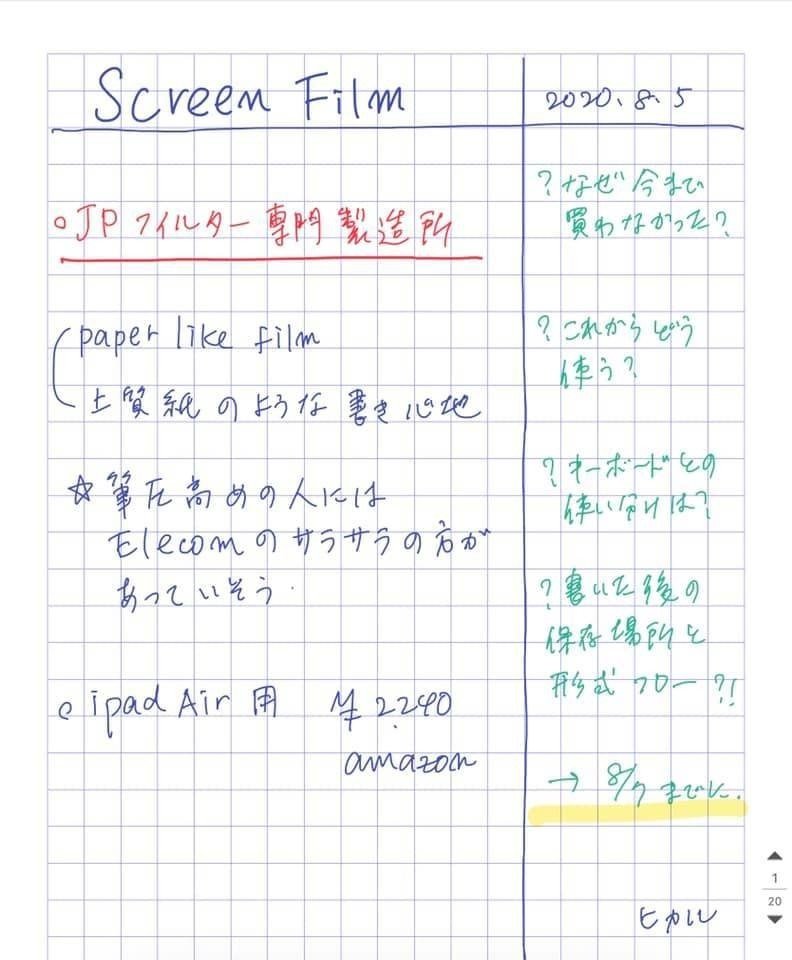 Screen Film
2020.8.5
○JPフィルター専門製造所
paper like film
上質紙のような書き心地
☆筆圧高めの人には
Elecomのサラサラの方が
あっていそう.
○ipad Air用 ¥2.240
amazon
?なぜ今まで
買わなかった?
?これからどう
使う?
?キーボードとの
使い分けは?
?書いた後の
保存場所と
形式フロー?!
→ 8/7までに.
ヒカル
1
20